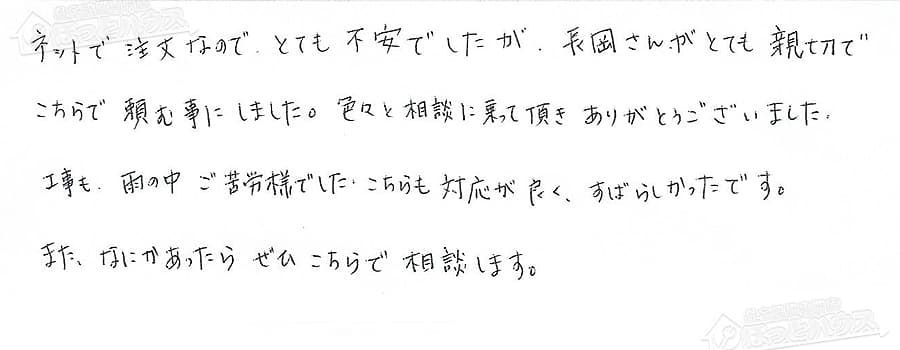 ネットで注文なので、とても不安でしたが、長岡さんがとても親切で
こちらで頼む事にしました。色々と相談に乗って頂きありがとうございました。
工事も、雨の中ご苦労様でした。こちらも対応が良く、すばらしかったです。
また、なにかあったらぜひこちらで相談します。